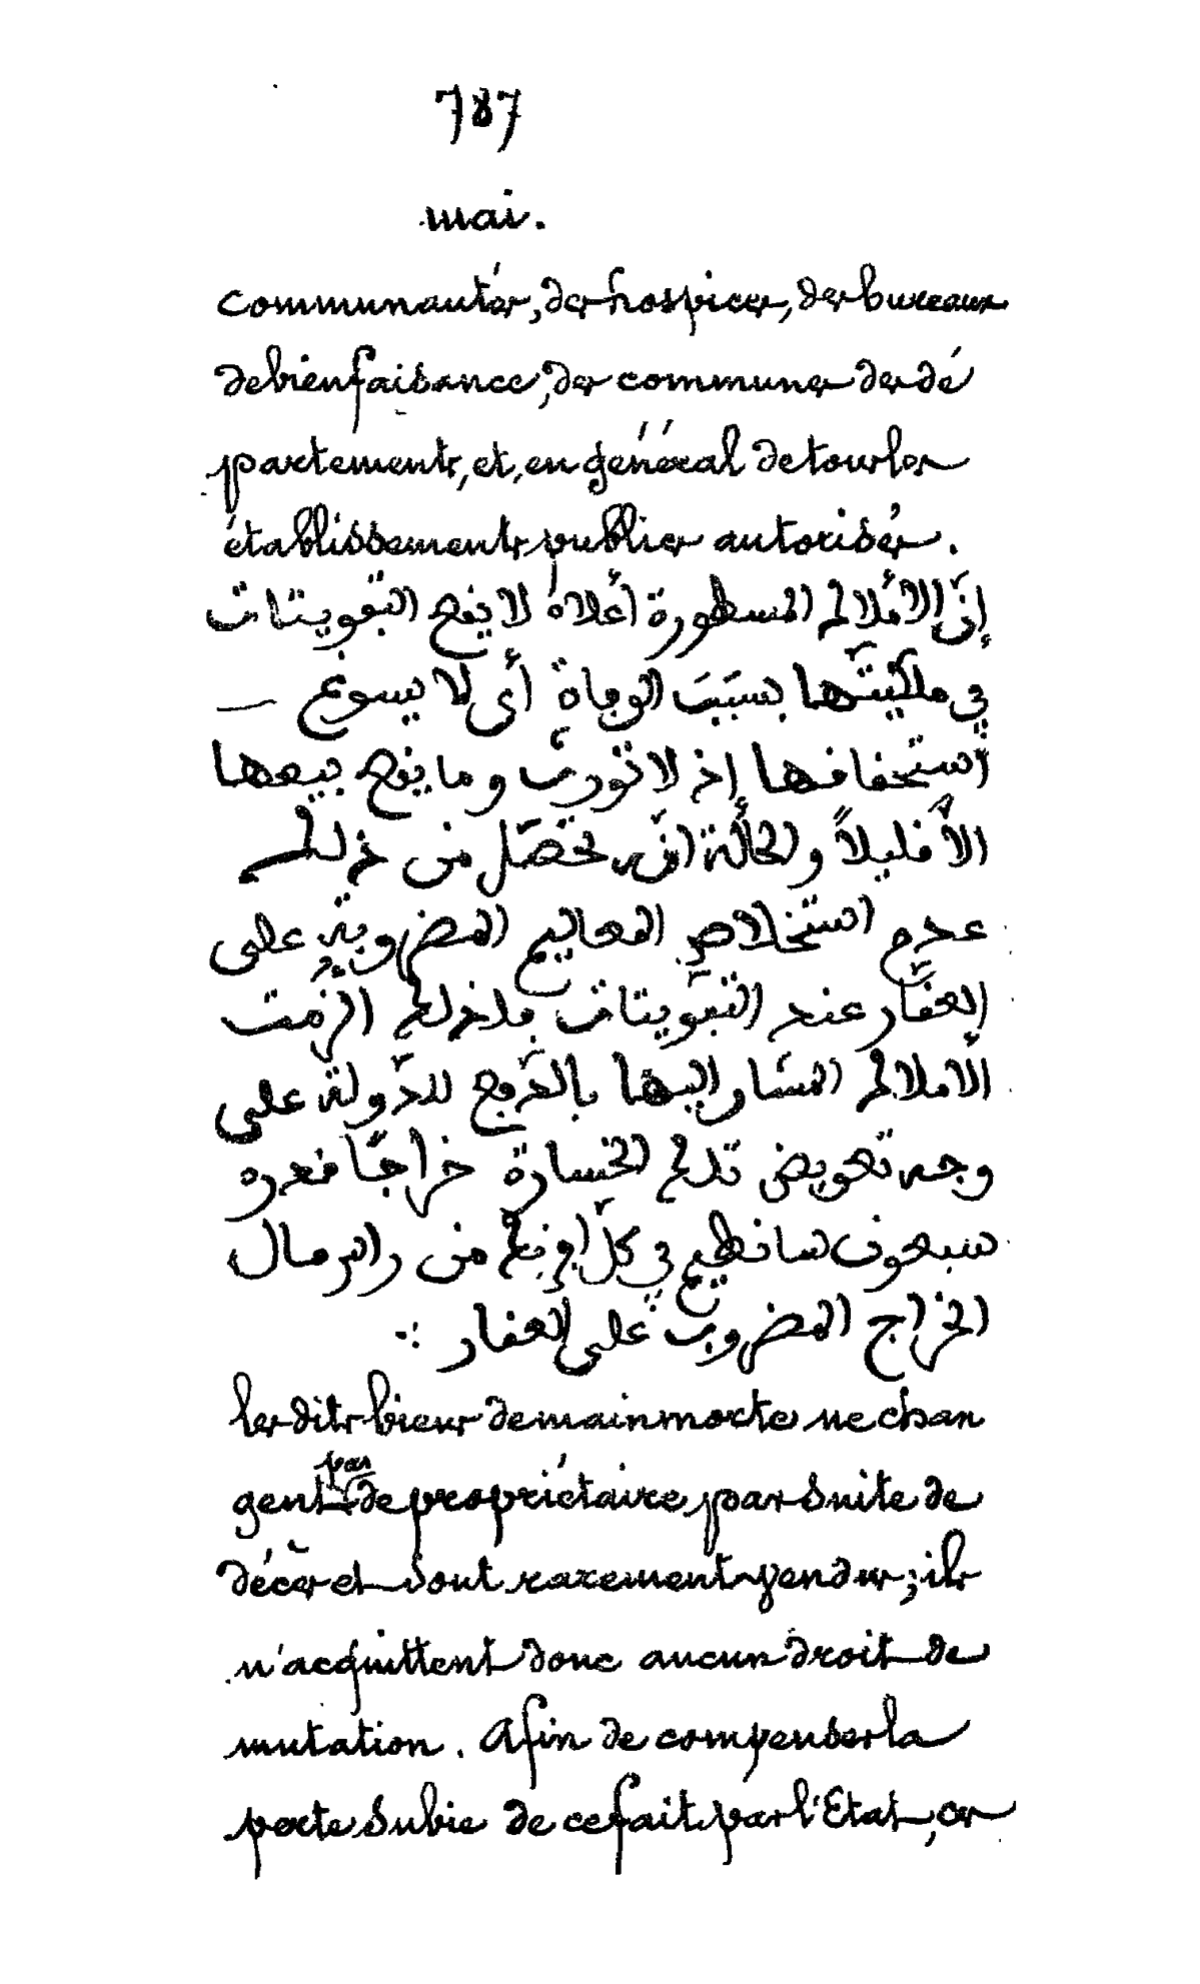 787
mai.
communautés, des hospices, des bureaux
de bienfaisance, des communes des dé
partements, et, en général de tous les
établissements publics autorisés.
إنّ الأملاك المسطورة أعلاه لا يقع التفويتات
في ملكيّتها بسبب الوفاة أي لا يسوغ
استحقاقها إذ لا تورث وما يقع بيعها
الّا قليلاً والحالة انّه تحصّل من ذلك
عدم استخلاص المعاليم المضروبة على
العقار عند التفويتات فلذلك الزمت
الأملاك المشار إليها بالدّفع للدّولة على
وجه تعويض تلك الخسارة خراجًا قدره
سبعون سانتيم في كلّ إفرنك من راس مال
الخراج المضروب على العقار :.
les dits biens de main morte ne chan
gent pas de propriétaire par suite de
décès et sont rarement vendus; ils
n'acquittent donc aucun droit de
mutation. Afin de compenser la
perte subie de ce fait par l'Etat, ces